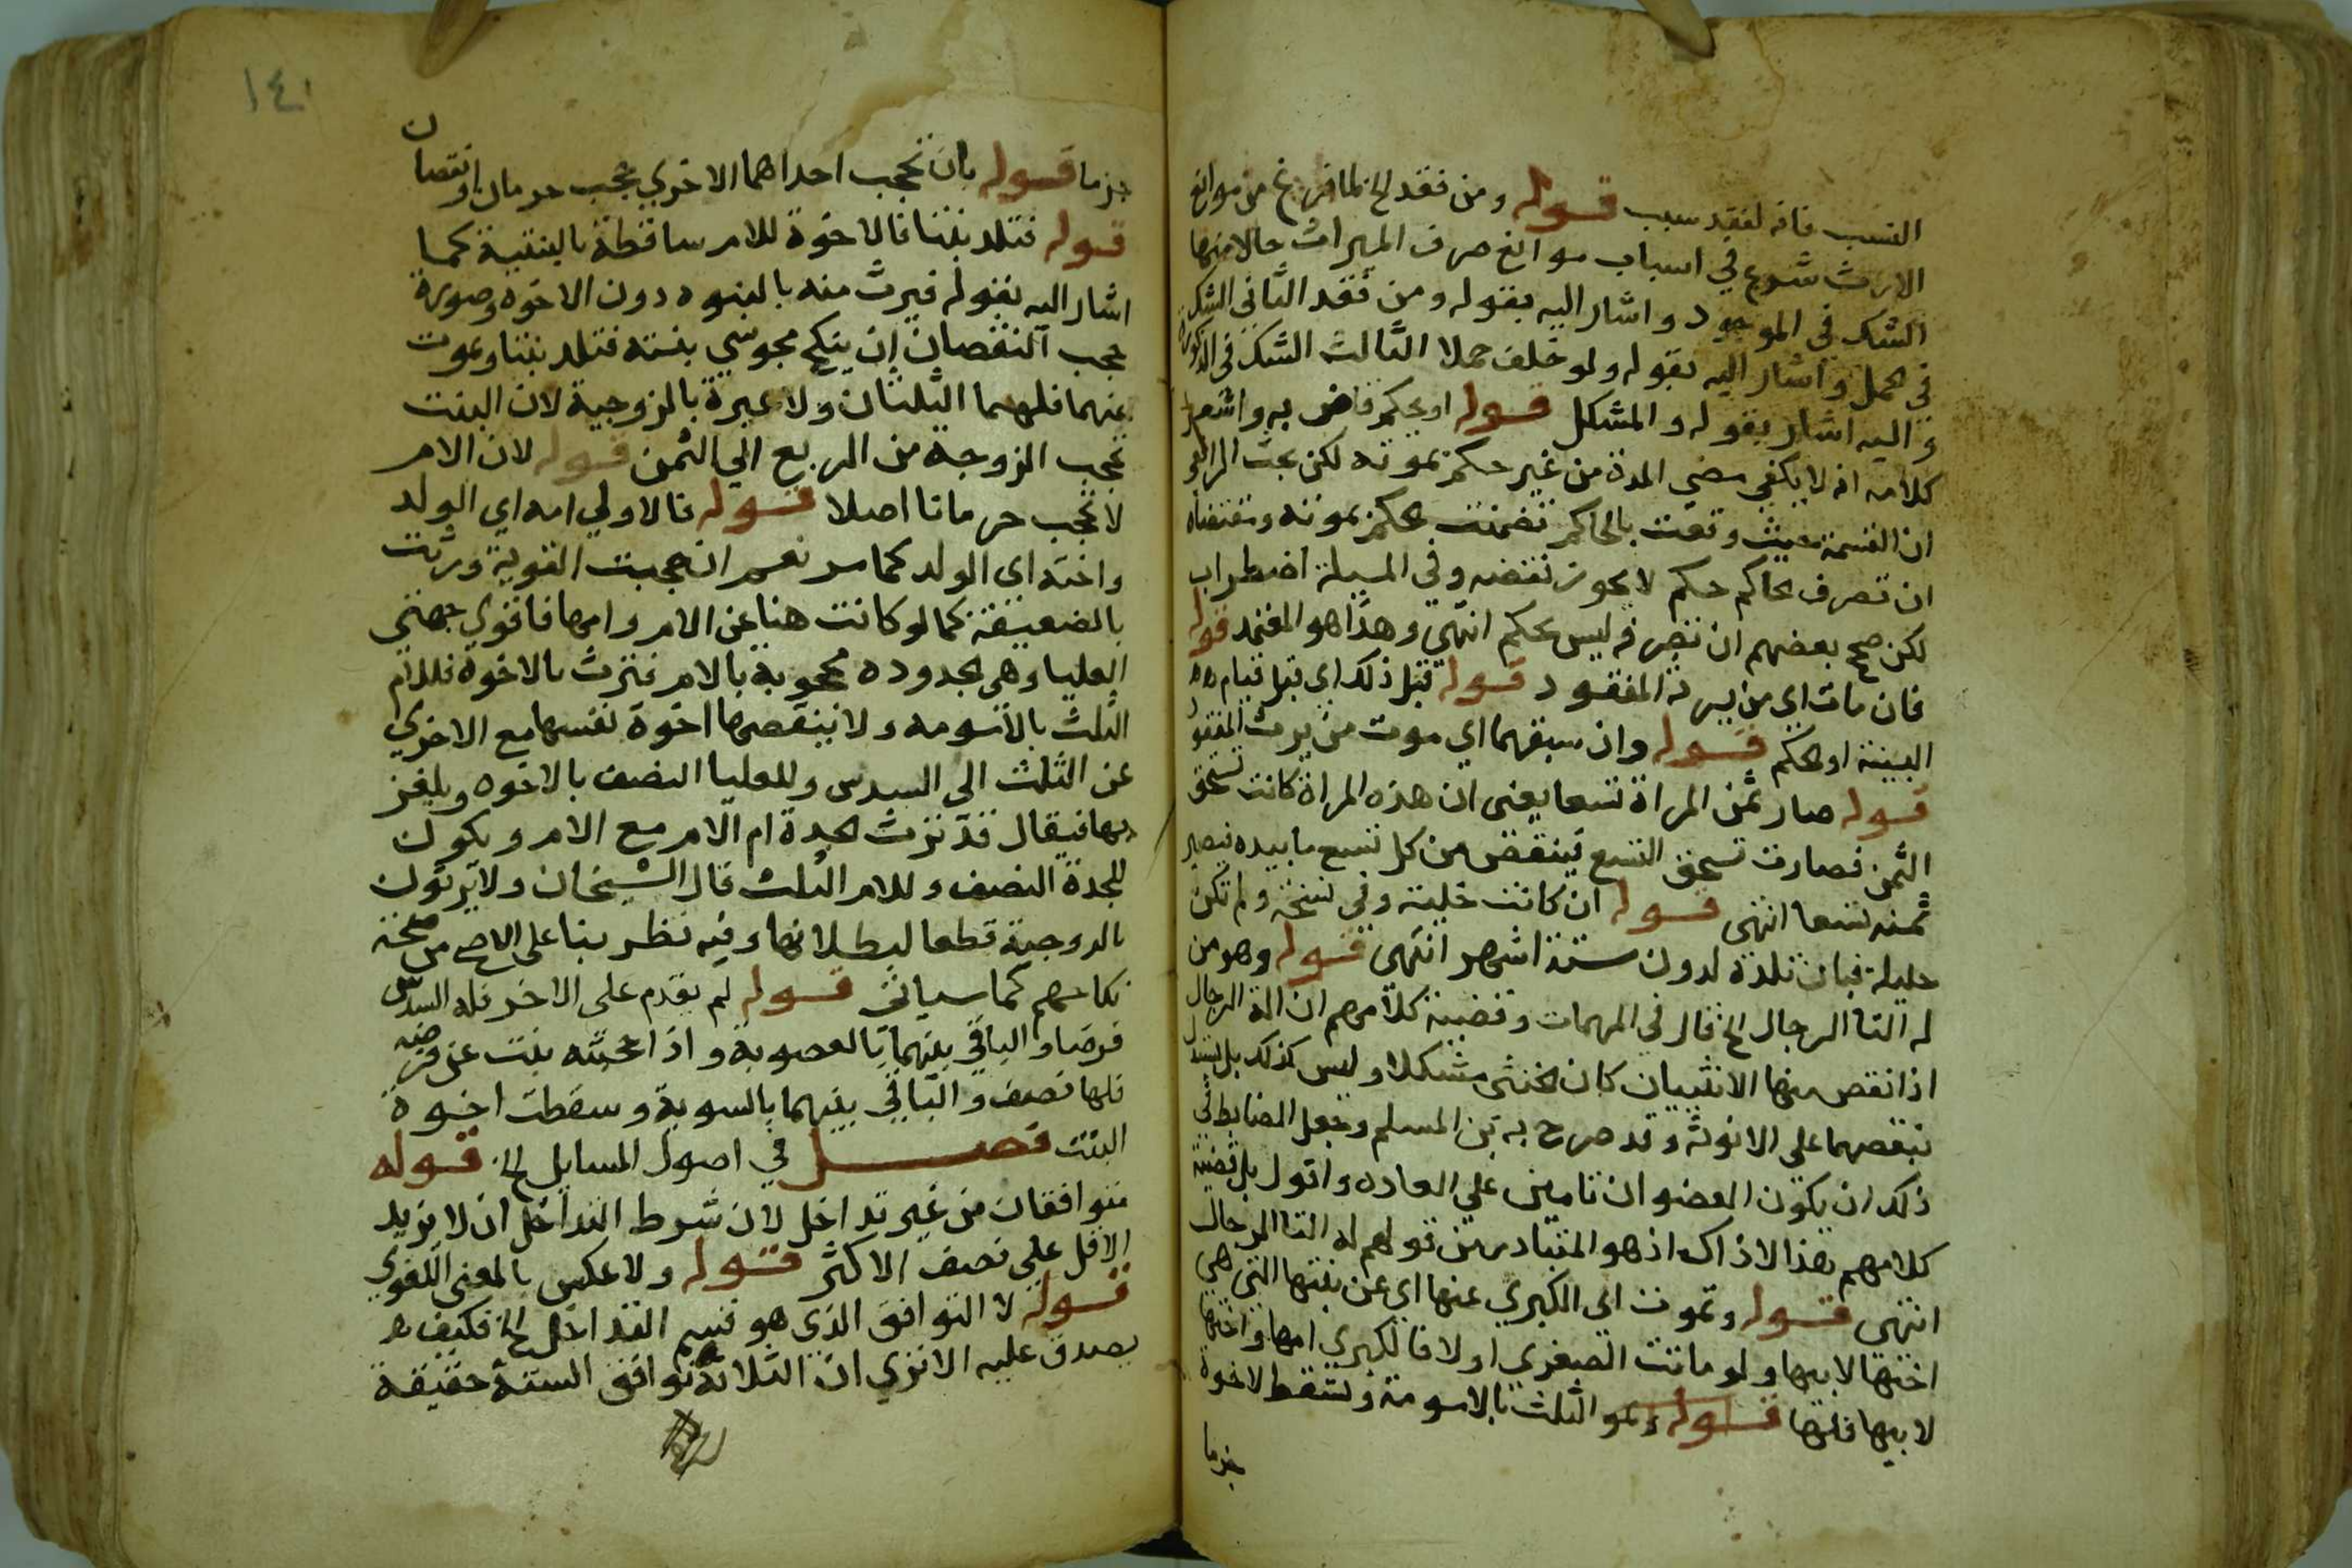 النسب فانه لفقد سبب قوله ومن فقد الخ لما فرغ من موانع
الارث شرع في اسباب موانع صرف الميراث حالا منها
الشك في الموجود واشار اليه بقوله ومن فقد الثاني الشك
في الحمل واشار اليه بقوله ولو خلف حملا الثالث الشك في الذكورة
واليه اشار بقوله والمشكل قوله او يحكم قاض به واشعر
كلامه انه لا يكفي مضي المدة من غير حكم بموته لكن بحث الرافعي
ان القسمة حيث وقعت بالحاكم تضمنت الحكم بموته ومقتضاه
ان تصرف الحاكم حكم لا يجوز نقضه وفي المسيلة اضطراب
لكن صحح بعضهم ان تصرفه ليس بحكم انتهى وهذا هو المعتمد قوله
فان مات اي من يرثه المفقود قوله قبل ذلك اي قبل قيام
البينة او الحكم قوله وان سبقهما اي موت من يرث المفقود
قوله صار ثمن المراة تسعا يعني ان هذه المراة كانت تستحق
الثمن فصارت تستحق التسع فينقص من كل تسع ما بيده فيصير
ثمنه تسعا انتهى قوله ان كانت خلية وفي نسخة ولم تكن
حليلة فبان تلده لدون ستة اشهر انتهى قوله وهو من
له التا الرجال الخ قال في المهمات وقضية كلامهم ان الة الرجال
اذا نقص منها الانثييان كان الخنثى مشكلا وليس كذلك بل يستدل
بنقصهما على الانوثة وقد صرح به ابن المسلم وجعل الضابط في
ذلك ان يكون العضوان تامين على العاده واقول بل قضية
كلامهم هذا لا ذاك اذ هو المتبادر من قولهم له التا الرجال
انتهى قوله وتموت اي الكبري عنها اي عن بنتها التي هي
اختها لابيها ولو ماتت الصغري اولا فالكبري امها واختها
لابيها فلها قوله وهو الثلث بالامومة وتسقط الاخوة
جزما
١٤١
جزما قوله بان تحجب احداهما الاخري حجب حرمان او نقصان
قوله فتلد بنتا فالاخوة للام ساقطة بالبنتية كما
اشار اليه بقوله فيرث منه بالبنوه دون الاخوه وصورة
حجب النقصان ان ينكح مجوسي بنته فتلد بنتا ويموت
عنهما فلهما الثلثان ولا عبرة بالزوجية لان البنت
تحجب الزوجة من الربع الي الثمن قوله لان الام
لا تحجب حرمانا اصلا قوله فالاولي امه اي الولد
واخته اي الولد كما مر نعم ان حجبت القوية ورثت
بالضعيفة كما لو كانت هنا عن الام وامها فاقوي جهتي
العليا وهي الجدوده محجوبة بالام فترث بالاخوة فللام
الثلث بالامومه ولا ينقصها اخوة نفسها مع الاخري
عن الثلث الى السدس وللعليا النصف بالاخوه ويلغز
بها فيقال قد ترث الجدة ام الام مع الام ويكون
للجدة النصف وللام الثلث قال الشيخان ولا يرثون
بالزوجية قطعا لبطلانها وفيه نظر بنا على الاصح من صحة
نكاحهم كما سياتي قوله لم يقدم على الاخر فله السدس
فرضا والباقي بينهما بالعصوبة واذا حجبته بنت عن فرضه
فلها نصف والباقي بينهما بالسوية وسقطت اخوة
البنت فصل في اصول المسايل الخ قوله
متوافقان من غير تداخل لان شرط التداخل ان لا يزيد
الاقل على نصف الاكثر قوله ولا عكس بالمعنى اللغوي
قوله لا التوافق الذي هو قسيم التداخل الخ فكيف
يصدق عليه الا تري ان الثلاثة توافق الستة حقيقة